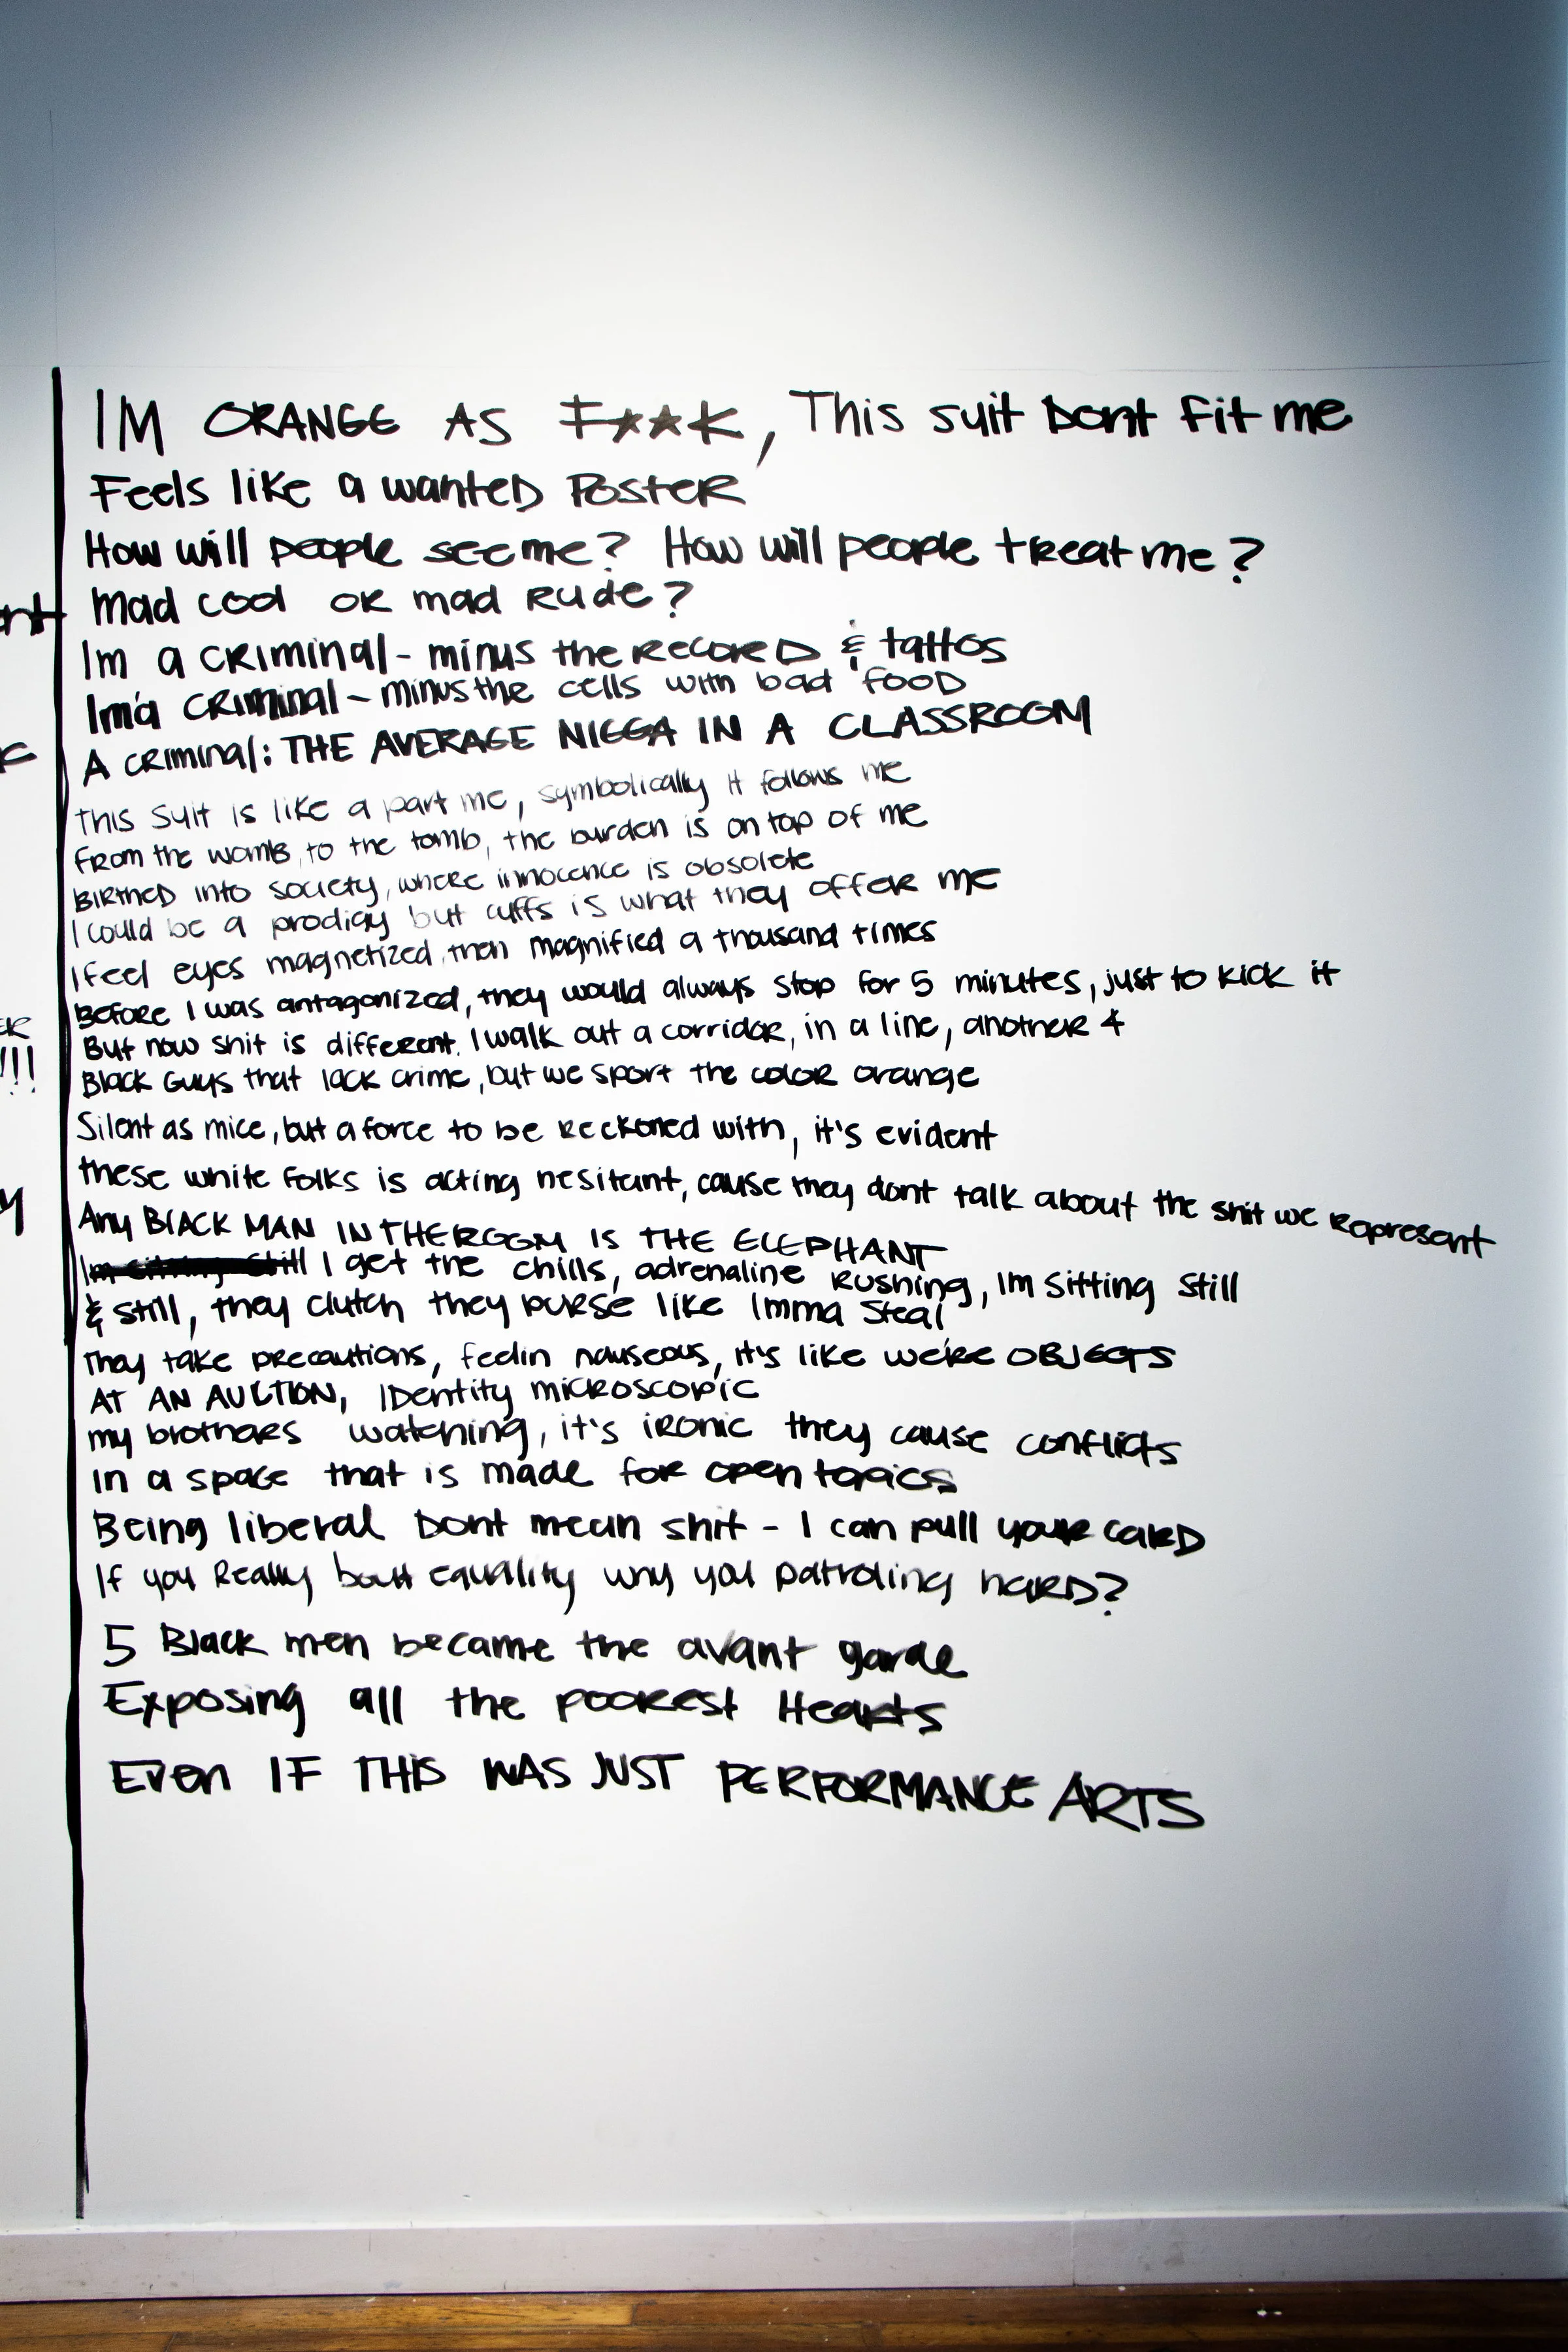 IM ORANGE AS F**K, This suit Dont fit me
Feels like a wanted Poster
How will people see me? How will people treat me?
mad cool or mad Rude?
Im a criminal - minus the Record & tattos
Im a criminal - minus the cells with bad food
A criminal: THE AVERAGE NIGGA IN A CLASSROOM
This suit is like a part me, symbolically it follows me
From the womb, to the tomb, the burden is on top of me
BIRTHED into society, where innocence is obsolete
I could be a prodigy but cuffs is what they offer me
I feel eyes magnetized, then magnified a thousand times
Before I was antagonized, they would always stop for 5 minutes, just to kick it
But now shit is different. I walk out a corridor, in a line, another 4
Black Guys that lack crime, but we sport the color orange
Silent as mice, but a force to be reckoned with, it's evident
these white folks is acting hesitant, cause they dont talk about the shit we Represent
Any BlACK MAN IN THE ROOM IS THE ELEPHANT
I get the chills, adrenaline Rushing, Im sitting still
& still, they clutch they purse like Imma steal
They take precautions, feelin nauseous, it's like we're OBJECTS
AT AN AUCTION, IDentity microscopic
my brothers watching, it's ironic they cause conflicts
In a space that is made for open topics
Being liberal Dont mean shit - I can pull your card
If you Really bout equality why you patroling hard?
5 Black men became the avant garde
Exposing all the poorest Hearts
Even IF THIS WAS JUST PERFORMANCE ARTS